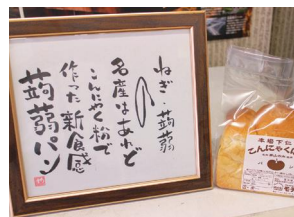 ねぎ・蒟蒻
名産はあれど
こんにゃく粉で
作った新食感
蒟蒻パン
本場下仁田
こんにゃくパン